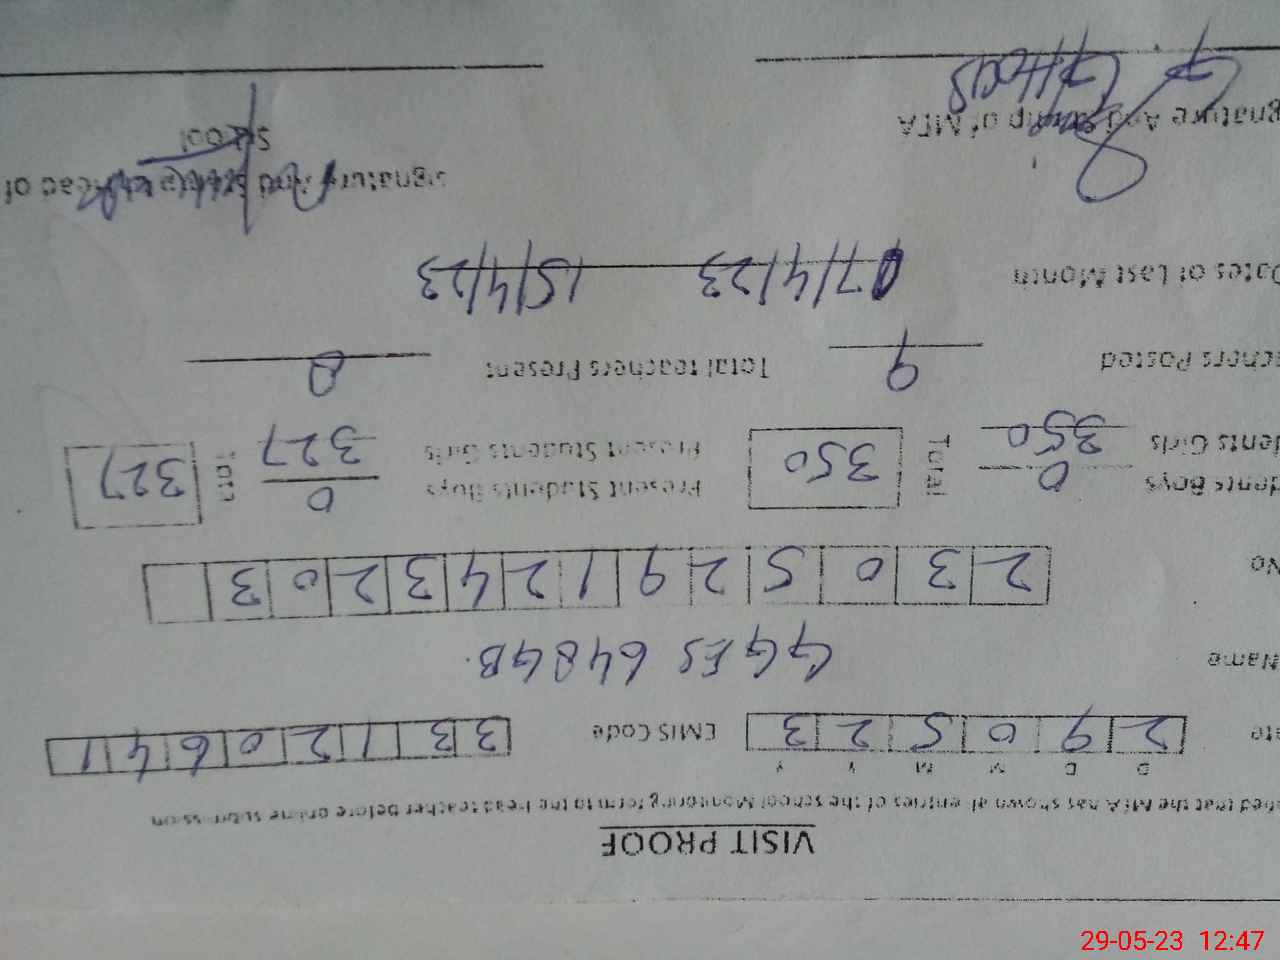 VISIT PROOF
that the MEA has shown all entries of the school Monitoring form to the Head teacher before online submission
D D M M Y Y
2 9 0 5 2 3 EMIS Code 3 3 1 2 0 6 4 1
Name GGES 648GB
No 2 3 0 5 2 9 1 2 4 3 2 0 3
Boys 0 Total 350 Present Students Boys 0 327
Girls 350 Present Students Girls 327
Posted 9 Total teachers Present
Dates of Last Month 07/4/23 15/4/23
And Stamp of MEA Signature And of Head of
School
29-05-23 12:47